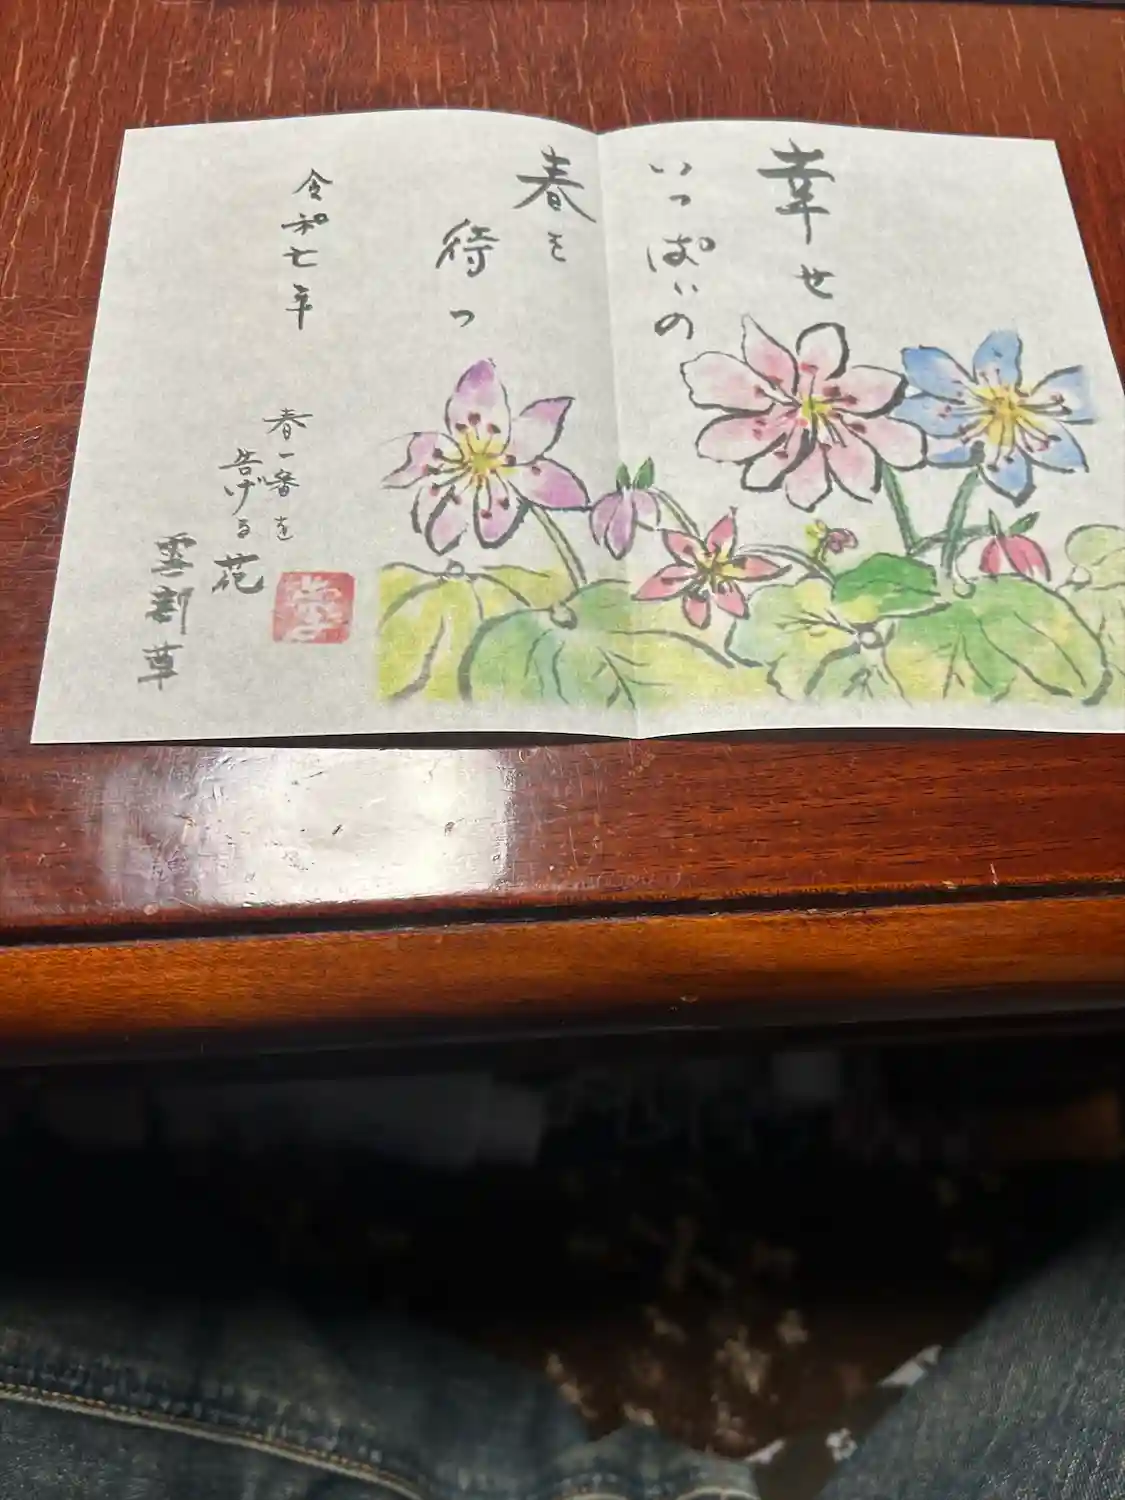 幸せ
いっぱいの
春を
待つ
令和七年
春一番を
告げる花
雪割草